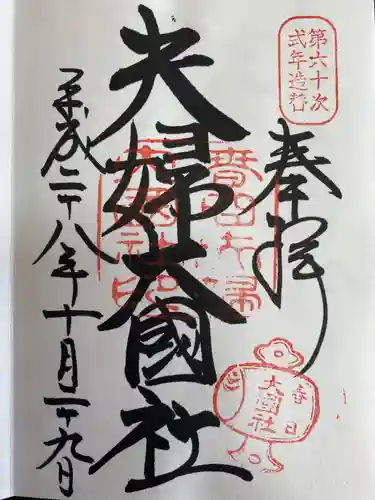 第六十次
式年造替
奉拝
夫婦大國社
平成二十八年十月二十九日
春日
大国社